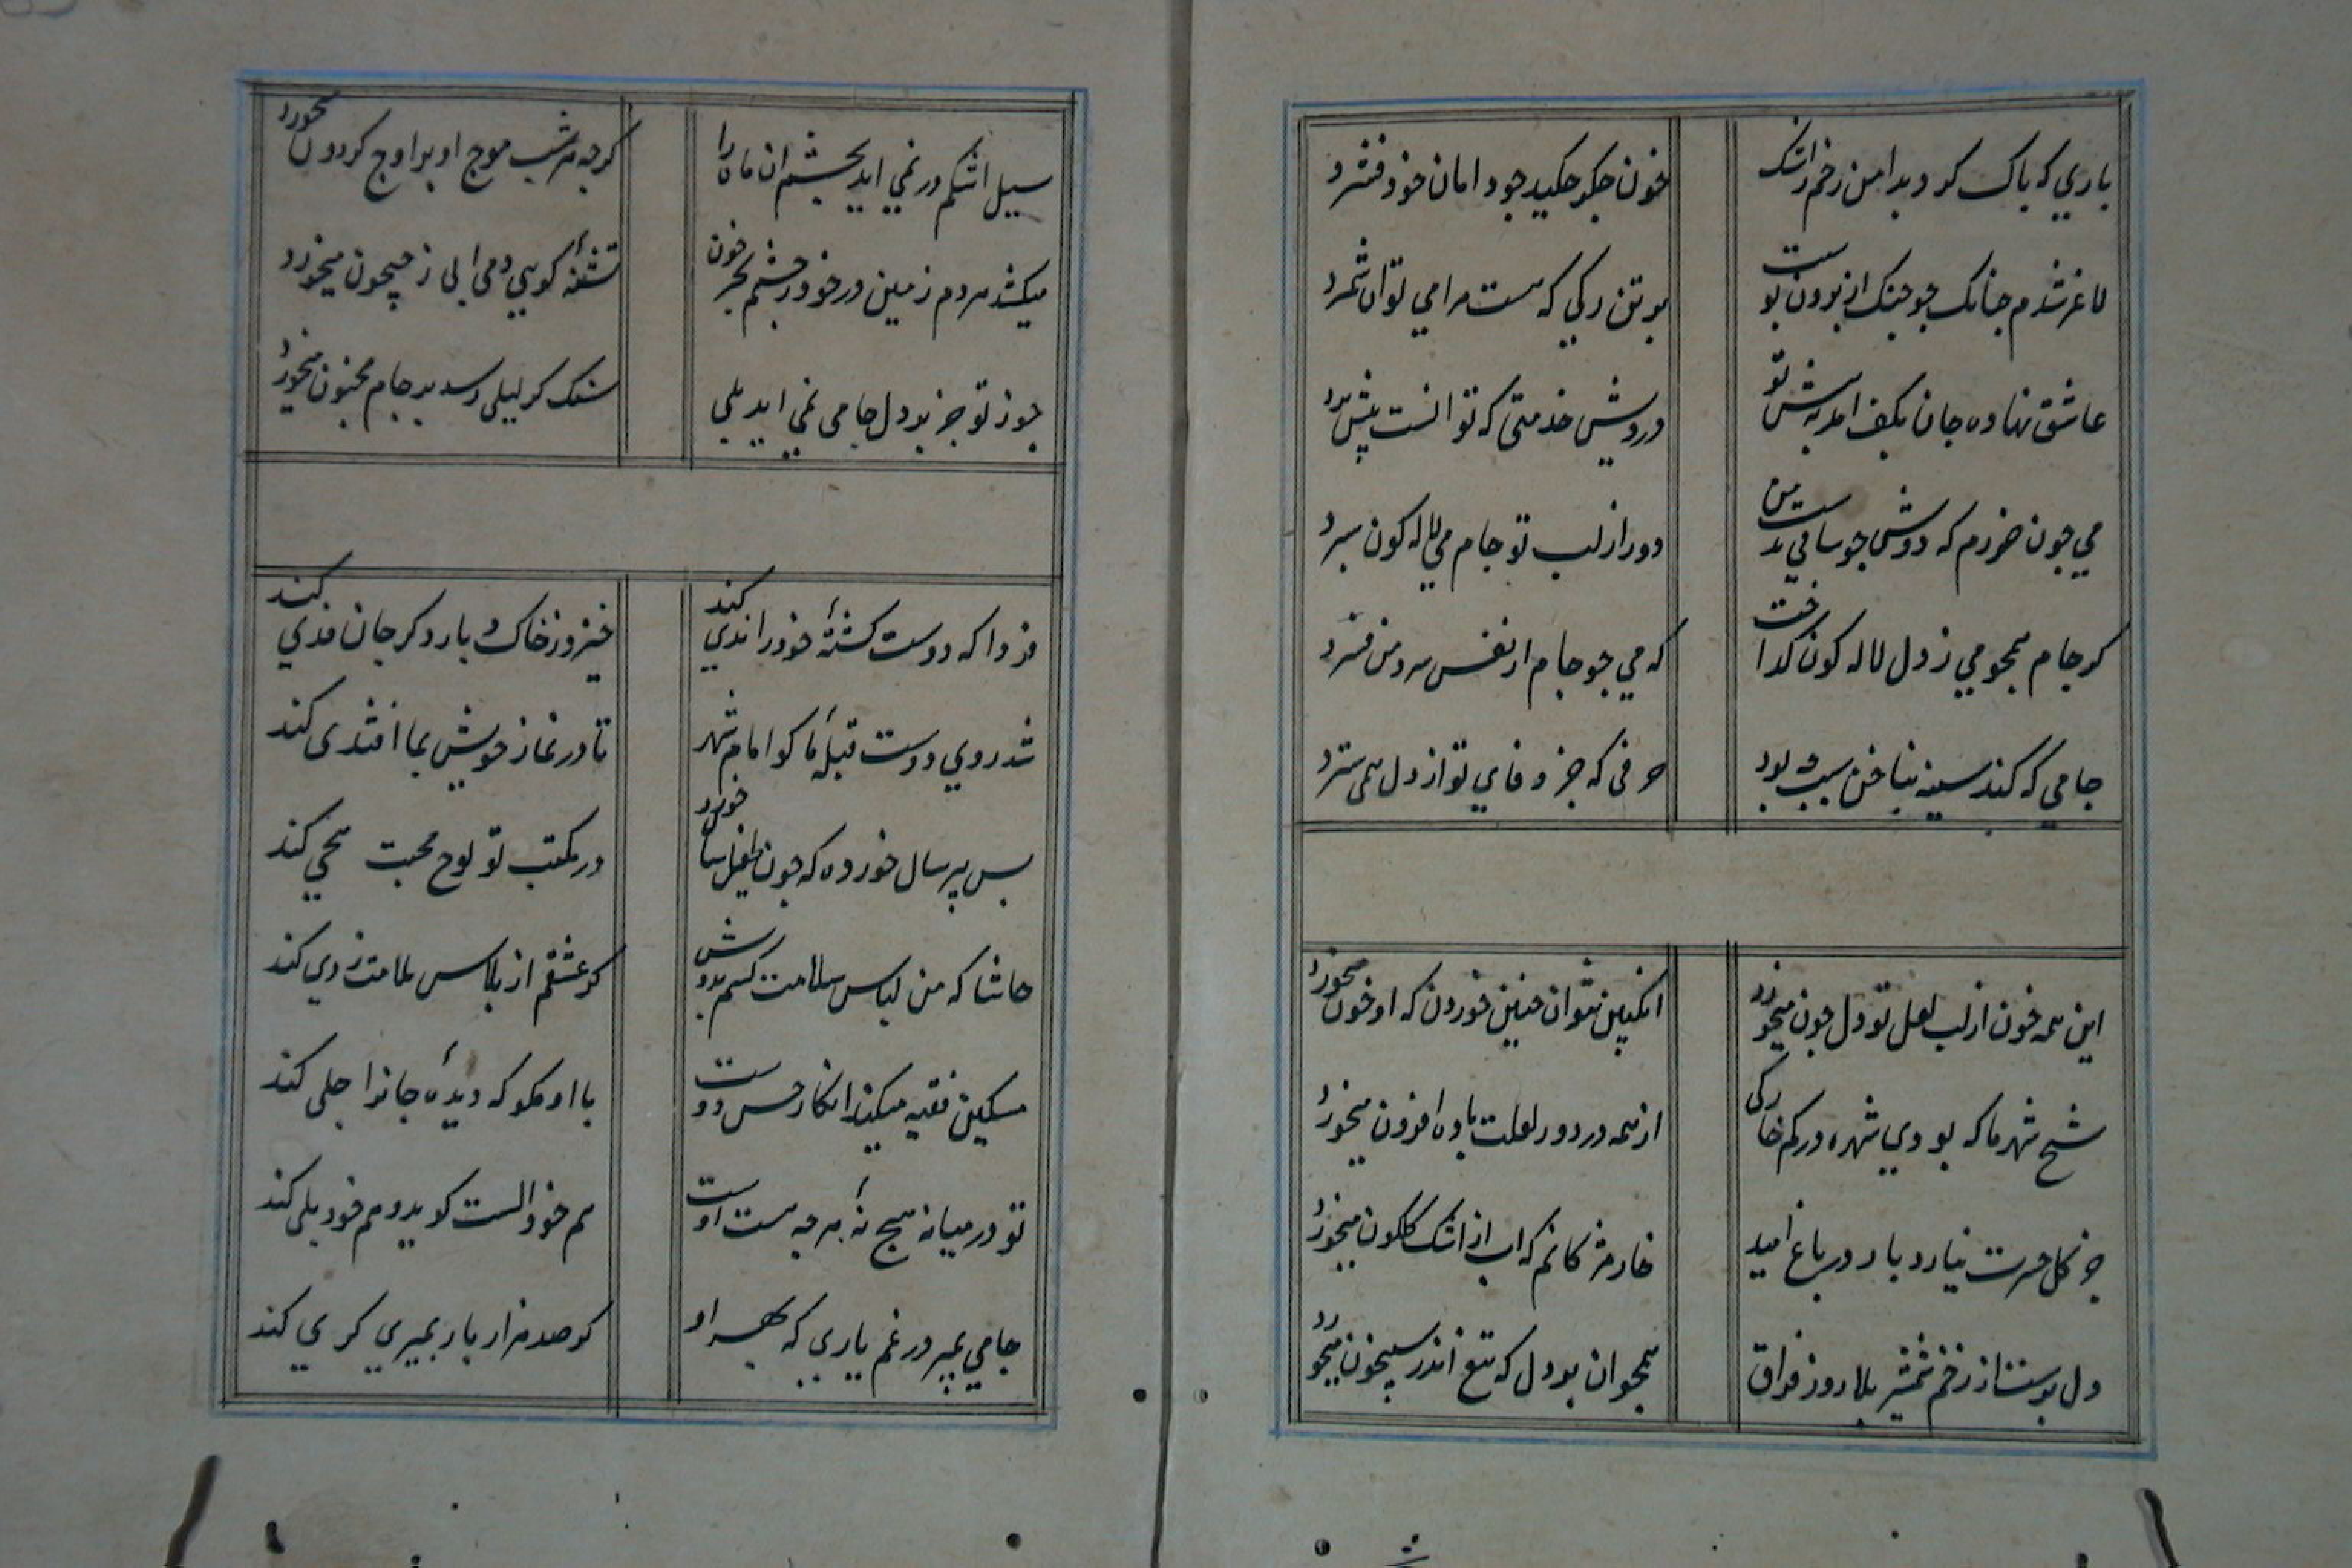 یاری که پاک کرد بدامن رخم ز اشک
خون جکر جکید جو دامان خود فشرد
لاغر شدم جنانک جو جنک از برون پوست
بر تن رکی که هست مرا می توان شمرد
عاشق نهاده جان بکف امد به پیش تو
درویش خدمتی که توانست پیش برد
می جون خورم که دوش جو ساقی بدست من
دور از لب تو جام می لاله کون سپرد
کر جام همجو می ز دل لاله کون کداخت
که می جو جام از نفس سرد من فسرد
جامی که کند سینه بناخن سبب بود
حرفی که جز وفای تو از دل همی سترد
این همه خون از لب لعل تو دل جون میخورد
انکبین نتوان جنین خوردن که او خون میخورد
شیخ شهر ما که بودی شهره در کم خوارکی
از همه در دور لعلت باده افزون میخورد
جز کل حسرت نیارد بار در باغ امید
خار مژکانم که اب از اشک کلکون میخورد
دل بر تست از زخم شمشیر بلا روز فراق
همجو ان بر دل که تیغ اندر میخورد
سیل اشکم در نمی اید بجشم ان ماه را
کرجه هر شب موج او بر اوج کردون میخورد
میکشد مردم زمین در خود ز جشمم بحر خون
تشنه کویی دمی ابی ز جیحون میخورد
جور تو جز بر دل جامی نمی اید بلی
سنک کز لیلی رسد بر جام مجنون میخورد
فردا که دوست کشته خود را ندی کند
خیزد ز خاک و بار دکر جان فدی کند
شد روی دوست قبله ما کو امام شهر
تا در نماز خویش بما اقتدی کند
بس پیر سال خورده که جون طفل سال خورد
در مکتب تو لوح محبت هجی کند
حاشا که من لباس سلامت کشم بدوش
کر عشقم از پلاس ملامت ردی کند
مسکین فقیه میکند انکار حسن دوست
با او مکو که دیده جانرا جلی کند
تو در میانه هیج نه هرجه هست اوست
هم خود الست کوید و هم خود بلی کند
جامی بمیر در غم یاری که بهر او
کر صد هزار بار بمیری کری کند